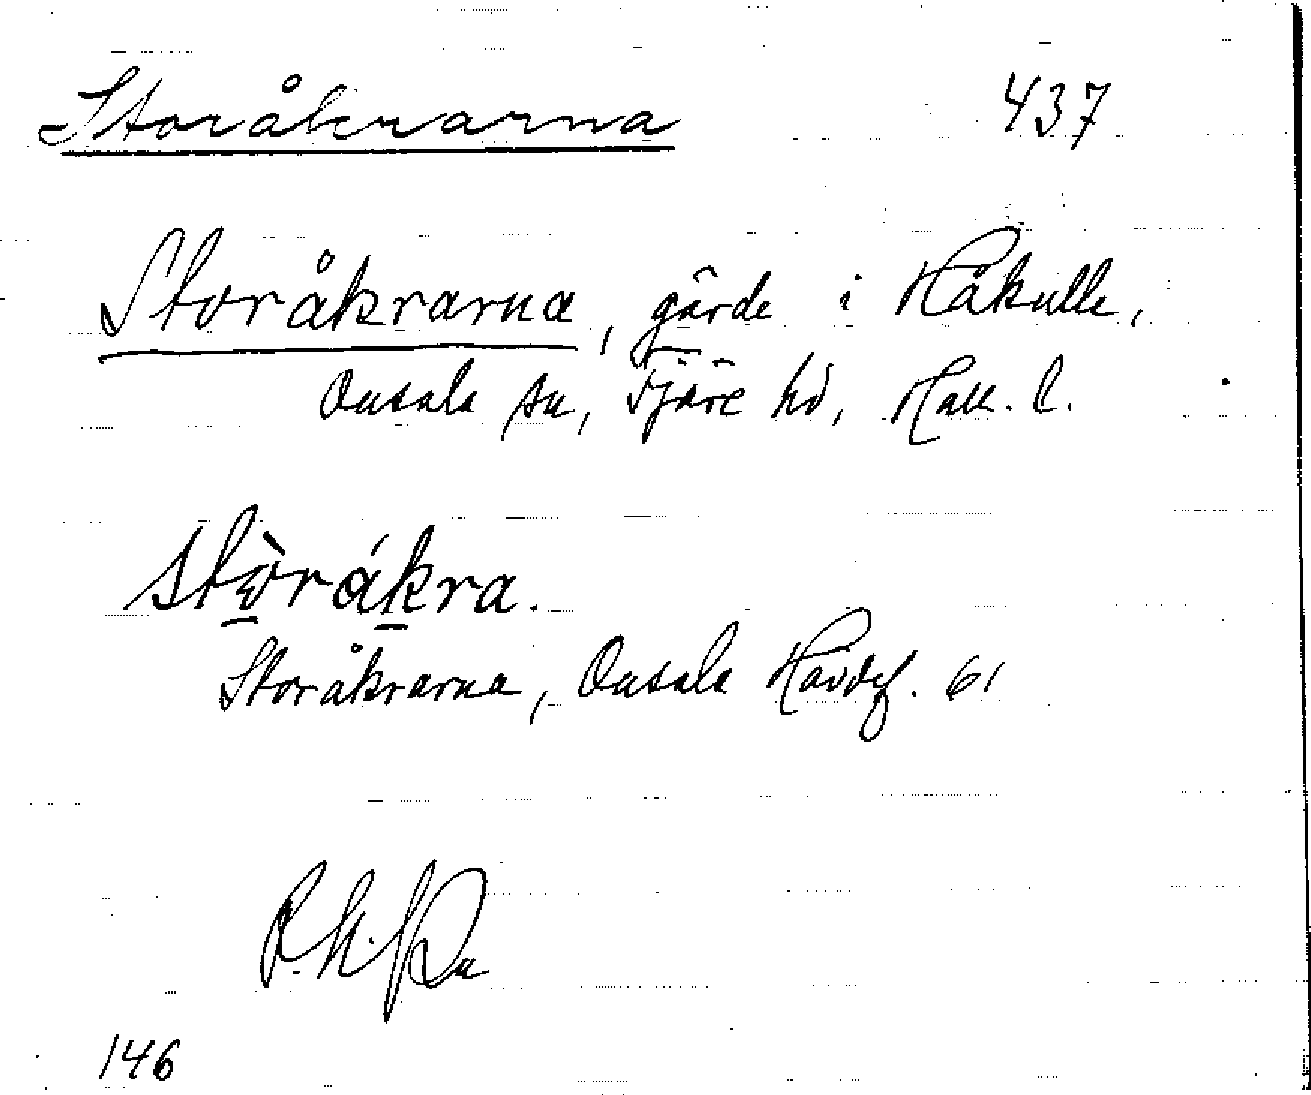 Storåkrarna 437
Storåkrarna, gärde i Håkulle,
Onsala sn, Fjäre hd, Hall. l.
stòråkra.
Storåkrarna, Onsala Havdhf. 61
146